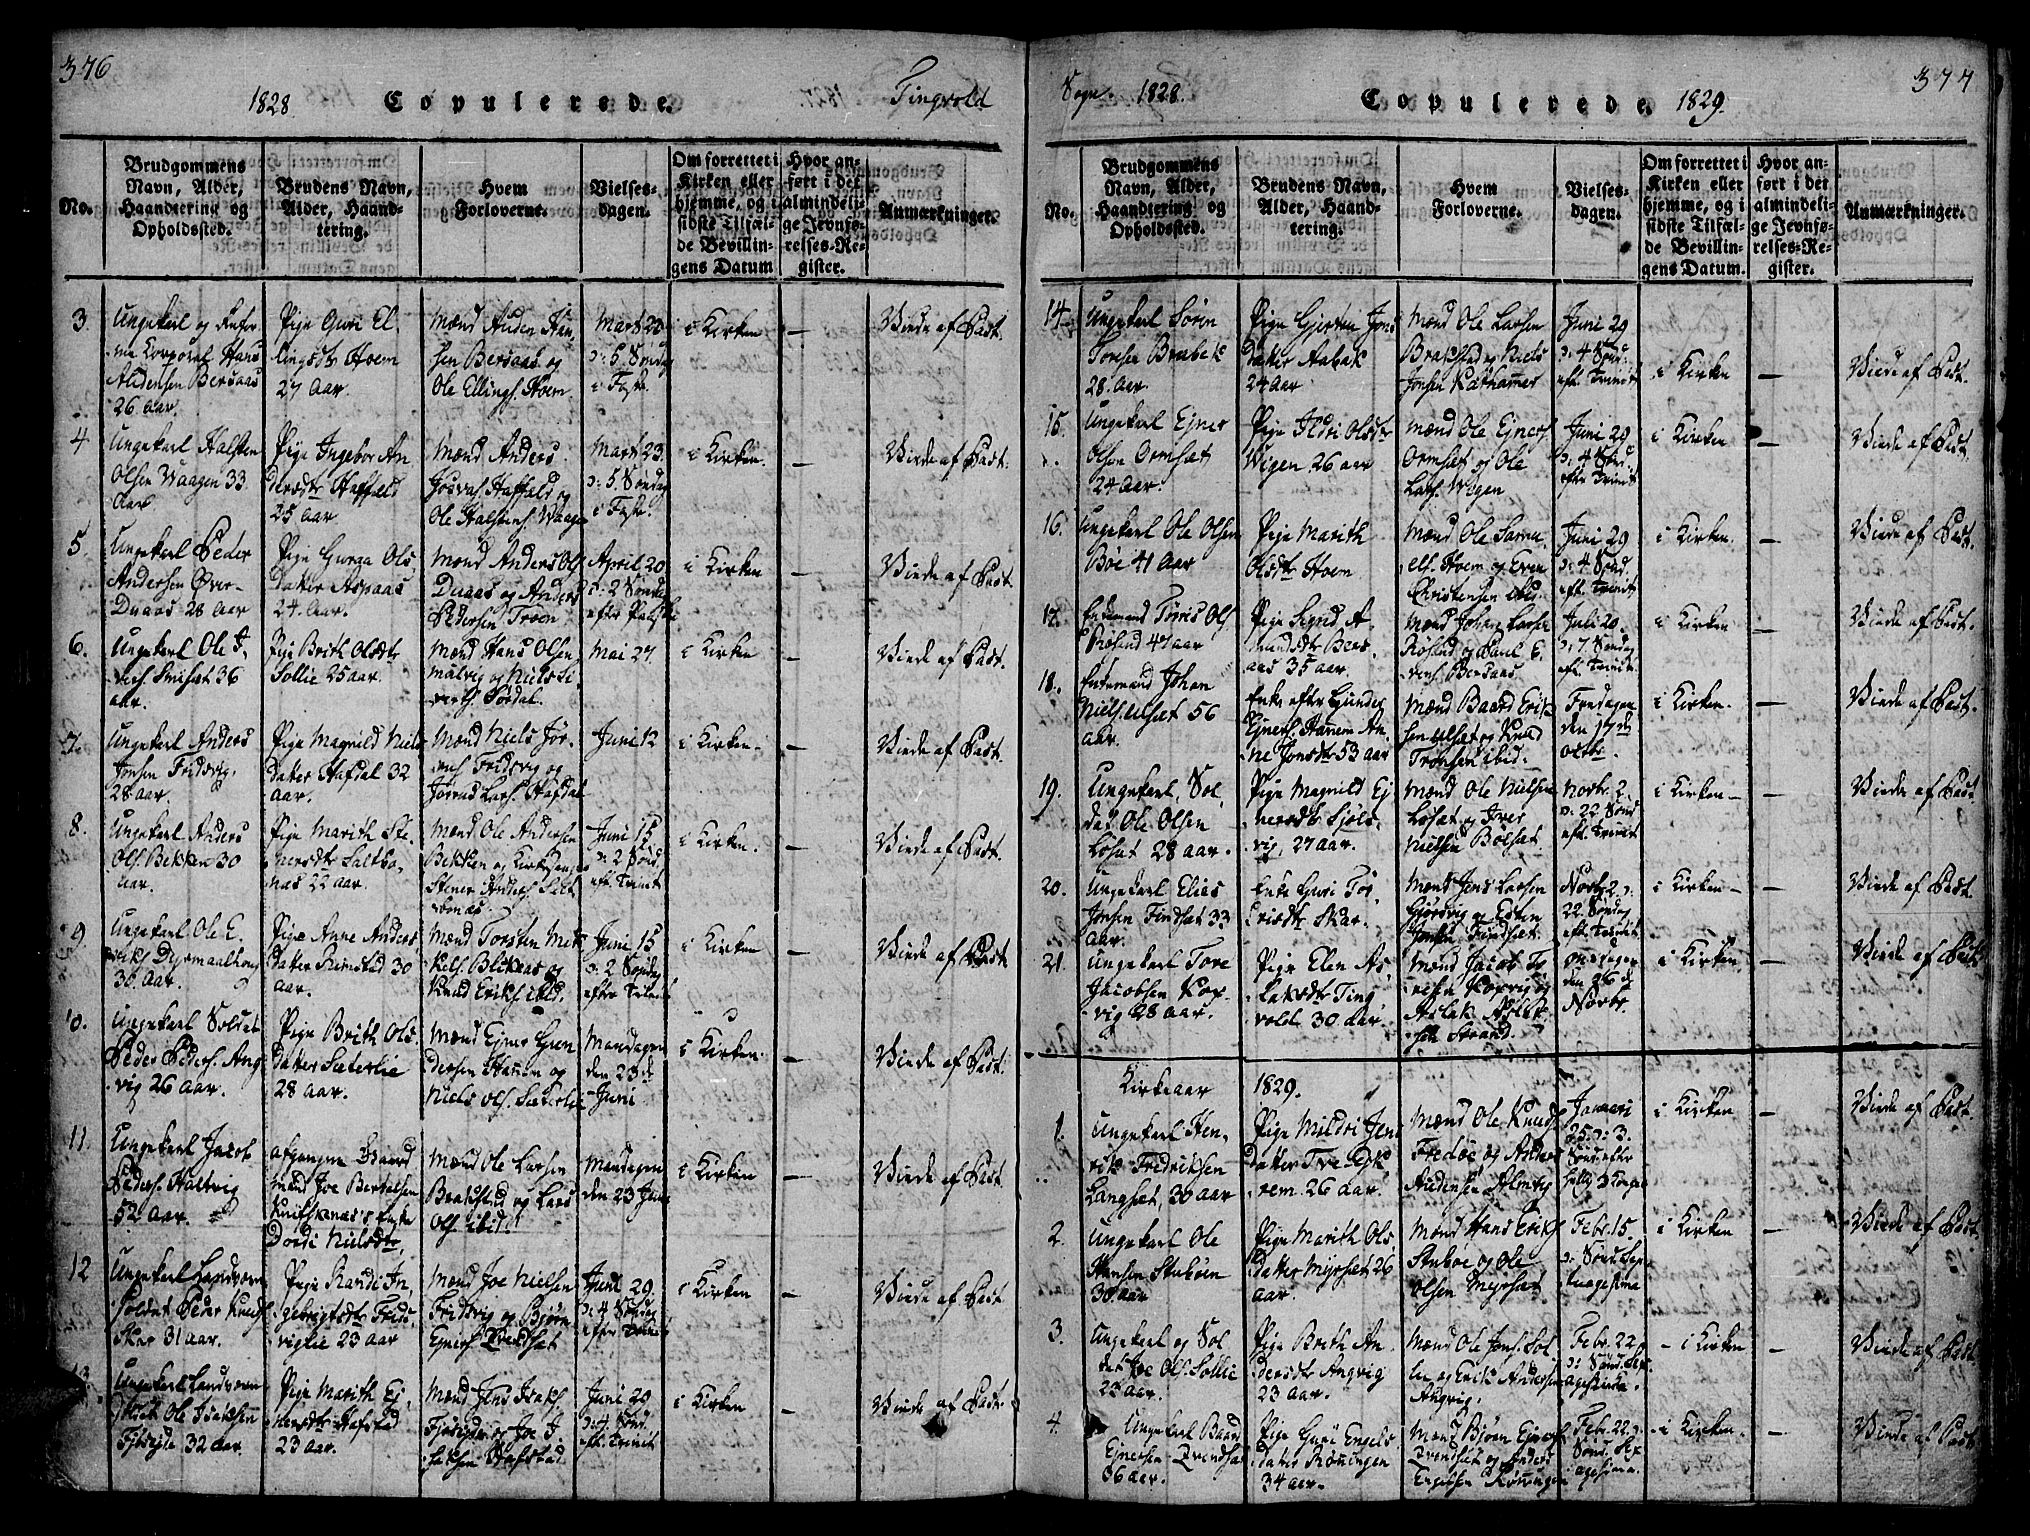 376
1828 Copulerede. Tingvold
No.
Brudgommens Navn, Alder, Haandtering og Opholdssted.
Brudens Navn, Alder, Haandtering.
Hvem Forloverne.
Vielsesdagen.
Om forrettet i Kirken eller hjemme, og i sidste Tilfælde Bevillingens Datum
Hvor anført i det almindelige Jevnførelses-Register.
Anmærkninger.
3. Ungekarl og
Corporal Hans
Audensen Bersaas
26 Aar.
Pige Guri El-
lingsdtr Hoem
27 Aar.
Mænd Auden Han-
sen Bersaas og
Ole Ellings. Hoem
Mart. 23
5 Søndag
i Faste.
i Kirken
—
Viede af Past.
4 Ungekarl Halsten
Olsen Vaagen 33
Aar
Pige Ingebor An
dersdtr Haffald
25 Aar
Mænd Anders
Haffald og
Ole Halstens. Waagen
Mart 23.
5 Søndag
i Faste.
i Kirken.
—
Viede af Past.
5. Ungekarl Peder
Andersen Över-
Duaas 28 Aar
Pige Gurga Ols
datter Aspaas
24 Aar.
Mænd Anders Ols
Duaas og Anders
Pedersen Troen
April 20
2 Søndag
efter Paaske
i Kirken
—
Viede af Past.
6. Ungekarl Ole I-
vers. Smisæt 36
Aar.
Pige Brith Olsdtr
Sollie 25 Aar.
Mænd Hans Olsen
Malvig og Niels Si-
verts. Sørdal.
Mai 27.
i Kirken
—
Viede af Past.
7. Ungekarl Anders
Jonsen Fridsvig.
28 Aar.
Pige Magnild Niels
datter Hafdal 32
Aar.
Mænd Niels Jör-
ens. Fridsvig og
Lars. Hafdal
Juni 12
i Kirken.
—
Viede af Past.
8. Ungekarl Anders
Ols. Bekken 30
Aar.
Pige Marith Ste
nersdtr Saltbo-
næs 22 Aar.
Mænd Ole Andersen
Bekken og
Stener Anders. Salt
bonæs.
Juni 15
2 Sönd.
eft. Trinit
i Kirken.
—
Viede af Past.
9 Ungekarl Ole E.
riks. Dyrmaalhoug
30 Aar.
Pige Anne Anders
datter Rimstad 30
Aar.
Mænd Torsten Mek
kels. Blikaas og
Knud Eriks. ibid.
Juni 15
2 Søndag
efter Trinit
i Kirken
—
Viede af Past
10. Ungekarl Soldat
Peder Peders. Ang
vig 26 Aar.
Pige Brith Ols
datter Sæterlie
28 Aar.
Mænd Ejner Gun
dersen Hanem og
Niels Ols. Sæterlie
Mandagen
den 23de
Juni
i Kirken.
—
Viede af Past.
11. Ungekarl Jacob
Peders. Hastvig
52 Aar.
afgangne Huusd
mand Joe Bertelsen
Enke
Dordi Nielsdtr.
Mænd Ole Larsen
Brakstad og Lars
Ols. ibid.
Mandagen
den 23 Juni
i Kirken
—
Viede af Past
12 Ungekarl Landværn
Soldat Peder Knuds.
Skar 31 Aar.
Pige Randi In
gebrigtsdtr Frids-
viglie 23 Aar
Mænd Joe Nielsen
Fridsvig og Bjørn
Ejners. Qvendsæt
Juni 29.
4 Søndag
efter Trinit
i Kirken
—
Viede af Past.
13. Ungekarl Landværn
Soldat Ole Isaksen
Fjøseide 32 Aar.
Pige Marith Ej
nersdtr Hafstad
23 Aar.
Mænd Jens Isaks.
Fjøseide og Joe I-
saksen Hafstad
Juni 29
4 Sönd
eft. Trinit
i Kirken
—
Viede af Past.
377
Sogn 1828. Copulerede. 1829.
No.
Brudgommens Navn, Alder, Haandtering og Opholdssted.
Brudens Navn, Alder, Haandtering.
Hvem Forloverne.
Vielsesdagen.
Om forrettet i Kirken eller hjemme, og i sidste Tilfælde Bevillingens Datum.
Hvor anført i det almindelige Jevnførelses-Register.
Anmærkninger.
14. Ungekarl Sörin
Toresen Brubek
28. Aar.
Pige Gjertru Jons
datter Aabak
24 Aar
Mænd Ole Larsen
Brakstad og Niels
Jonsen Kalhammer
Juni 29
4 Sönd.
eft. Trinit
i Kirken
—
Viede af Past.
15. Ungekarl Ejner
Olsen Ormsæt
24 Aar.
Pige Ildri Olsdtr
Wigen 26 Aar
Mænd Ole Ejners.
Ormsæt og Ole
Lars. Wigen
Juni 29
4 Sönd
efter Trinit
i Kirken
—
Viede af Past.
16. Ungekarl Ole Olsen
Böe 41 Aar
Pige Marith
Olsdtr Hoem
Mænd Ole Samu
els. Hoem og Even
Christensen ibid.
Juni 29
4 Sönd.
eft. Trinit
i Kirken.
—
Viede af Past.
17. Enkemand Torris Ols.
Rösland 47 Aar
Pige Sigrid A-
mundsdtr Bers
aas 35 Aar.
Mænd Johan Larsen
Rösland og Paul E-
vens. Bersaas
Juli 20.
7. Søndag
eft. Trinit
i Kirken
—
Viede af Past.
18. Enkemand Johan
Niels. Ulsæt 56
Aar.
Enke efter Gunder
Ejners. Hanem An-
ne Jonsdtr 53 Aar
Mænd Baard Erik
sen Ulsæt og Knud
Tronsen ibid.
Fredagen
den 17de
Octbr.
i Kirken.
—
Viede af Past.
19. Ungekarl, Sol-
dat Ole Olsen
Löset 28 Aar.
Pige Magnild Ej
nersdtr Sjöls-
vig, 27 Aar.
Mænd Ole Nielsen
Löset og Iver
Nielsen Bölset
Novbr. 2.
22 Sönd
eft. Trinit
i Kirken —
—
Viede af Past.
20. Ungekarl Elias
Jonsen Findsæt 33
Aar.
Enke Guri Tor-
risdtr Skar.
Mænd Jens Larsen
Gjörsvig og Estin
Jonsen Findsæt.
Novbr 2
22. Søndag
eft. Trinit
i Kirken —
—
Viede af Past.
21. Ungekarl Tore
Jacobsen Kor-
vig 28 Aar.
Pige Elen As-
laksdtr Ting-
vold 30 Aar.
Mænd Jacob To
resen Korsvig og
Aslak Aslak
sen Strand.
Onsdagen
den 26de
Novbr.
i Kirken.
—
Viede af Past.
Kirkeaar 1829.
1. Ungekarl Hen-
rik Fridriksen
Langsæt, 30 Aar
Pige Mildri Jens
datter
26 Aar.
Mænd Ole Knuds.
Fredöe og Anders
Audensen Almvig
Januari
25. 3.
Sönd. efter
Hellig 3 Konger
i Kirken
—
Viede af Past.
2. Ungekarl Ole
Hansen Stuböen
30 Aar
Pige Marith Ols
datter Myrsæt 26
Aar.
Mænd Hans Eriks
Stuböe og Ole
Olsen Myrsæt.
Febr. 15.
Sönd. Sep
tuagesima
i Kirken
—
Viede af Past.
3. Ungekarl og Sol
dat Joe Ols. Sollie
23 Aar.
Pige Brith An
dersdtr Angvig
23 Aar.
Mænd Ole Jons. Sol
lie og Erik Andersen
Angvig.
Febr. 22
Sönd. Sex
agesima.
– i Kirken
—
Viede af Past
4. Ungekarl Baard
Ejnersen Qvendsæt
36 Aar.
Pige Guri Engels
datter Rönningen
34 Aar.
Mænd Bjørn Ejners.
Qvendsæt og Anders
Engelsen Rönningen
Febr. 22.
Sönd. Sex
agesima.
i Kirken.
—
Viede af Past.